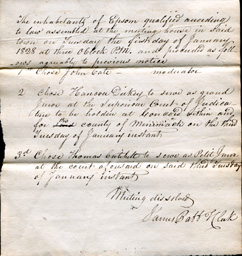 The inhabitants of Epsom qualified according
to law assembled at the meeting house in said
town on Tuesday the first day of January
1828 at three O Clock P.M. and proceeded as fol-
lows agreeably to previous notice
1st Chose John Cate — moderator
2 Chose Hanson Durkey to serve as grand
Juror at the Superior Court of Judica
ture to be holden at Concord within and
for the county of Merrimack on the third
Tuesday of January instant
3d Chose Thomas to serve as Petit Juror
at the court aforesaid on said third Tuesday
of January instant
Meeting dissolved
James Clerk